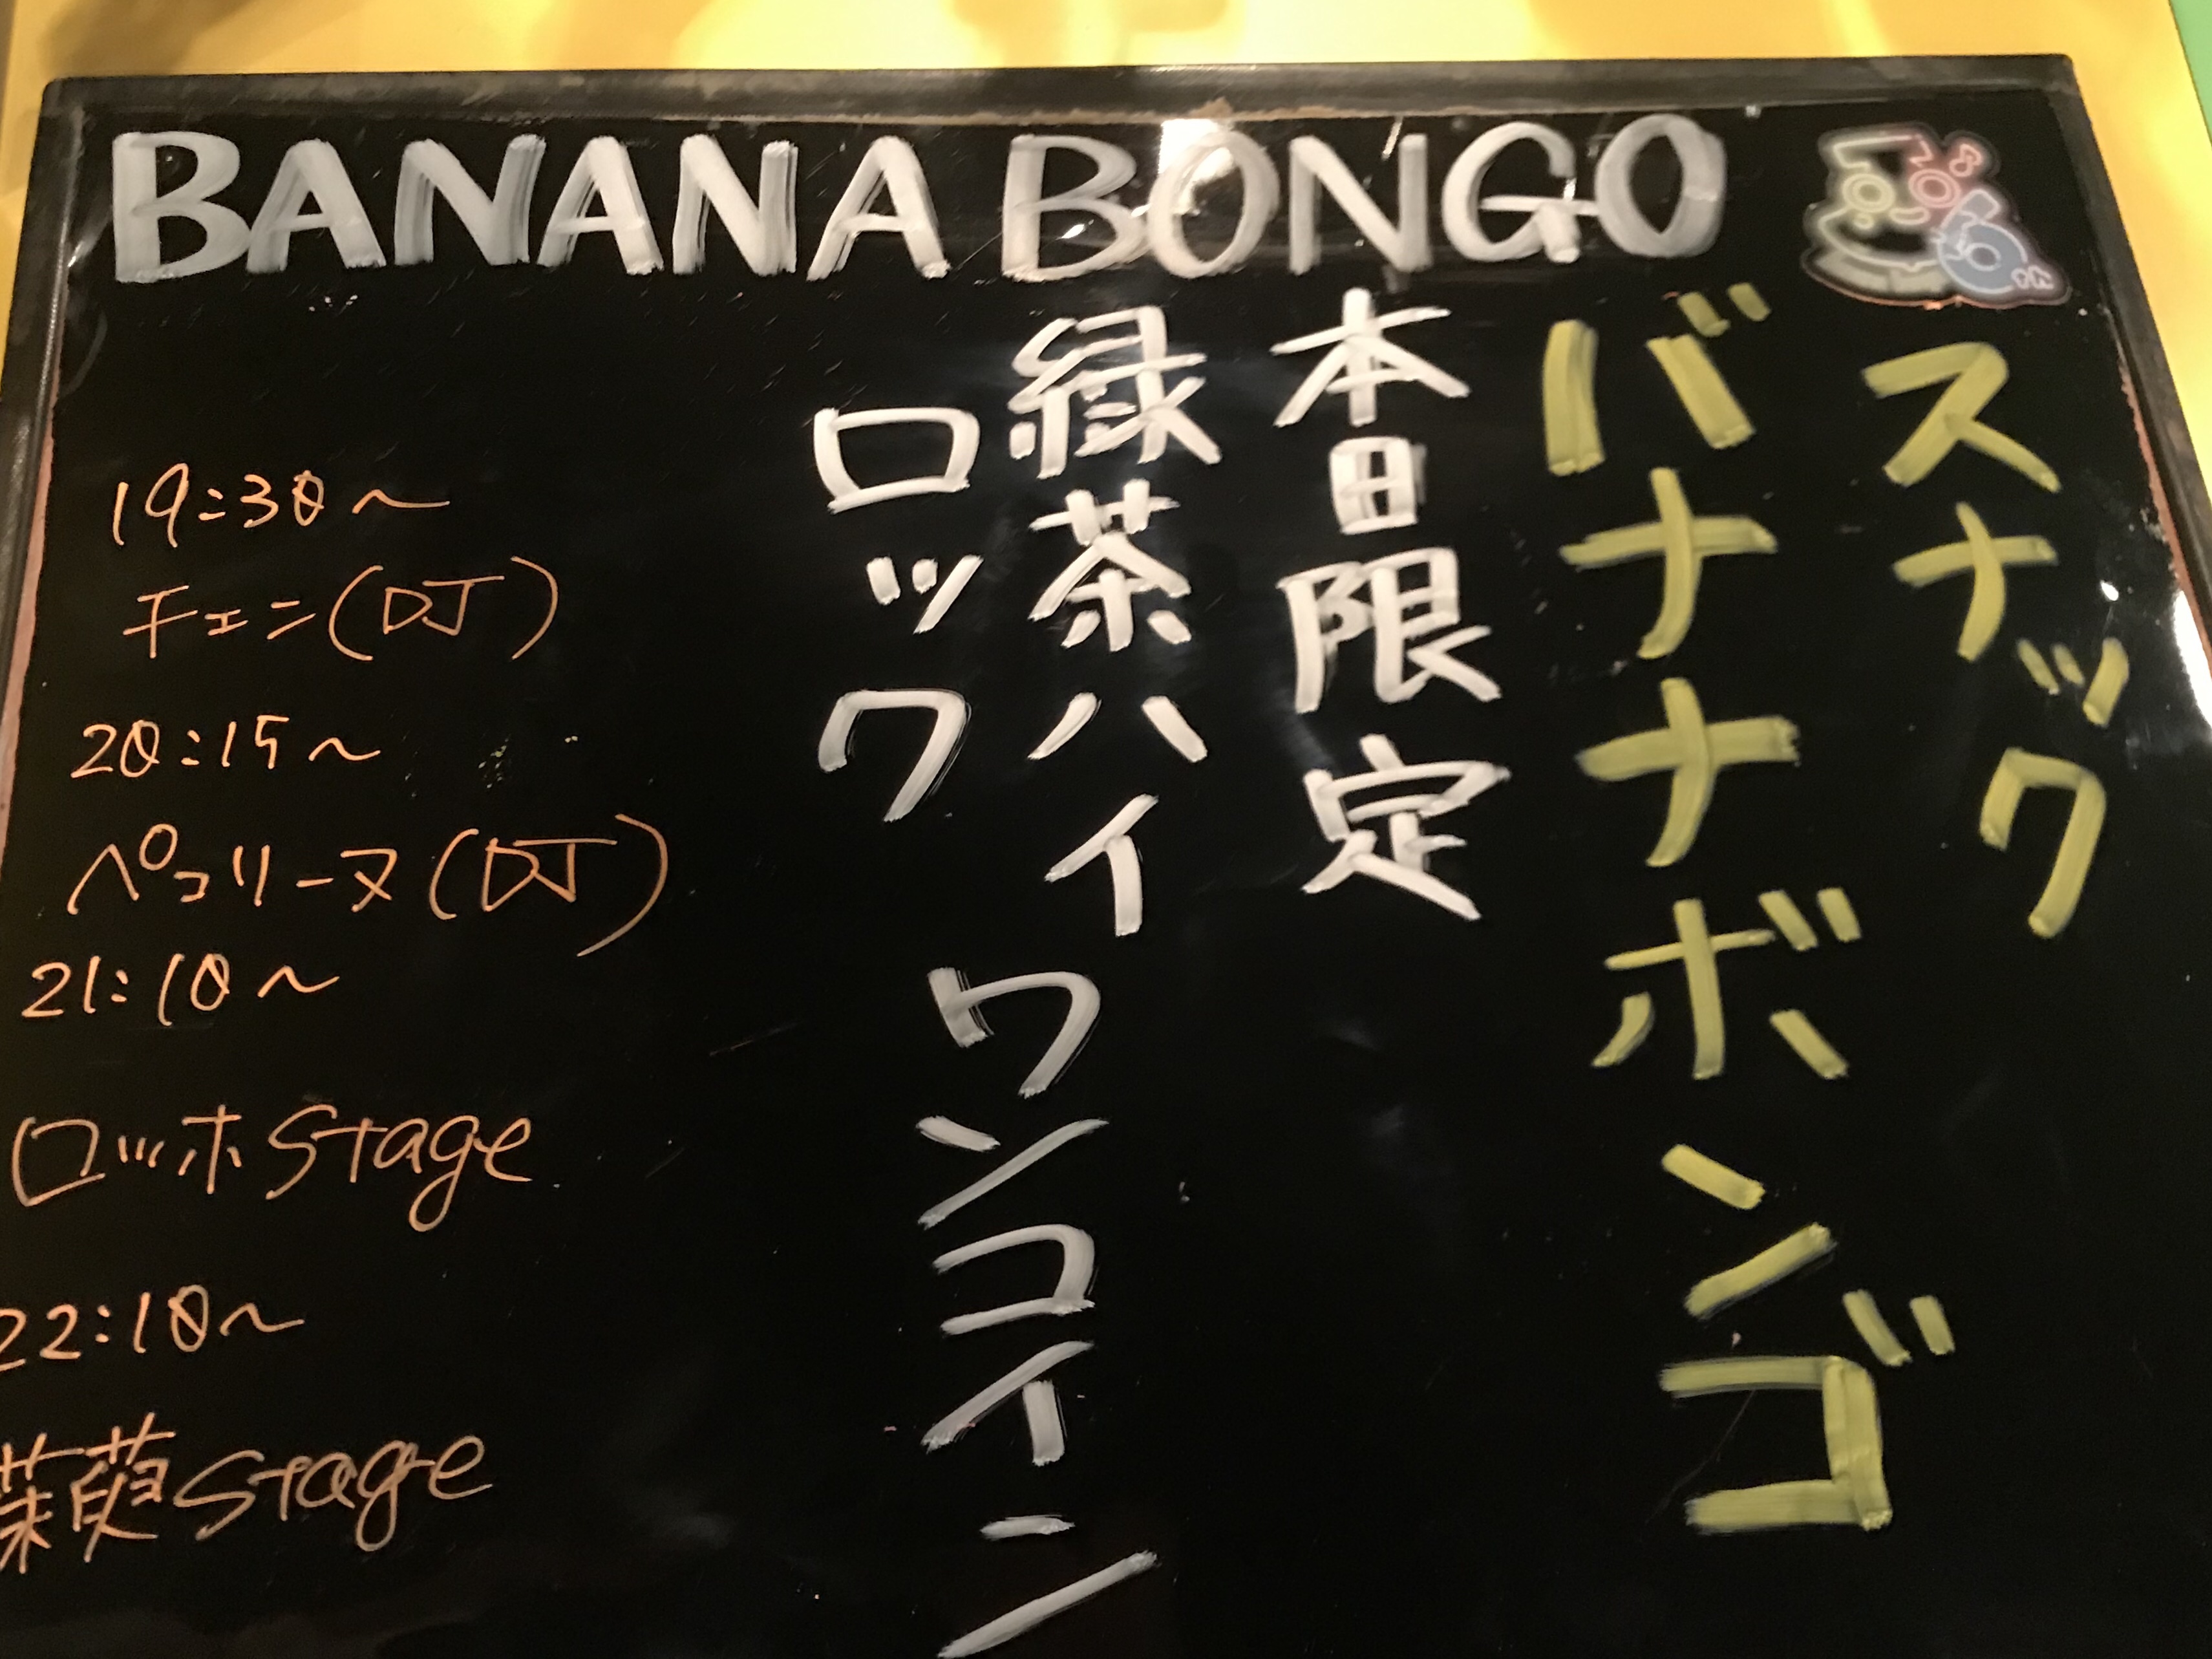 BANANA BONGO
スナック
バナナボンゴ
本日限定
緑茶ハイワンコイン
ロック
19:30〜
チェン(DJ)
20:15〜
ペコリーヌ(DJ)
21:10〜
ロッホStage
22:10〜
茱萸Stage